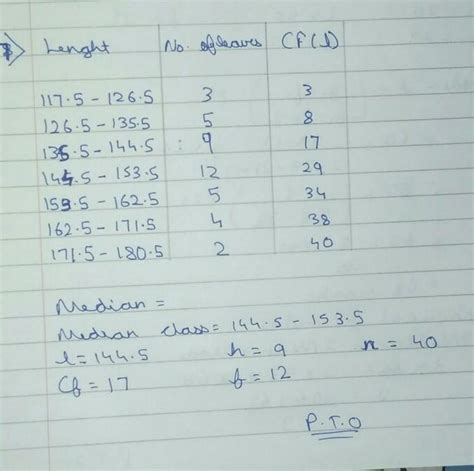 Lenght No. of leaves CF(f)
117.5 - 126.5 3 3
126.5 - 135.5 5 8
135.5 - 144.5 : 9 17
144.5 - 153.5 12 29
153.5 - 162.5 5 34
162.5 - 171.5 4 38
171.5 - 180.5 2 40
Median =
Median class = 144.5 - 153.5
l = 144.5 h = 9 n = 40
Cf = 17 f = 12
P.T.O